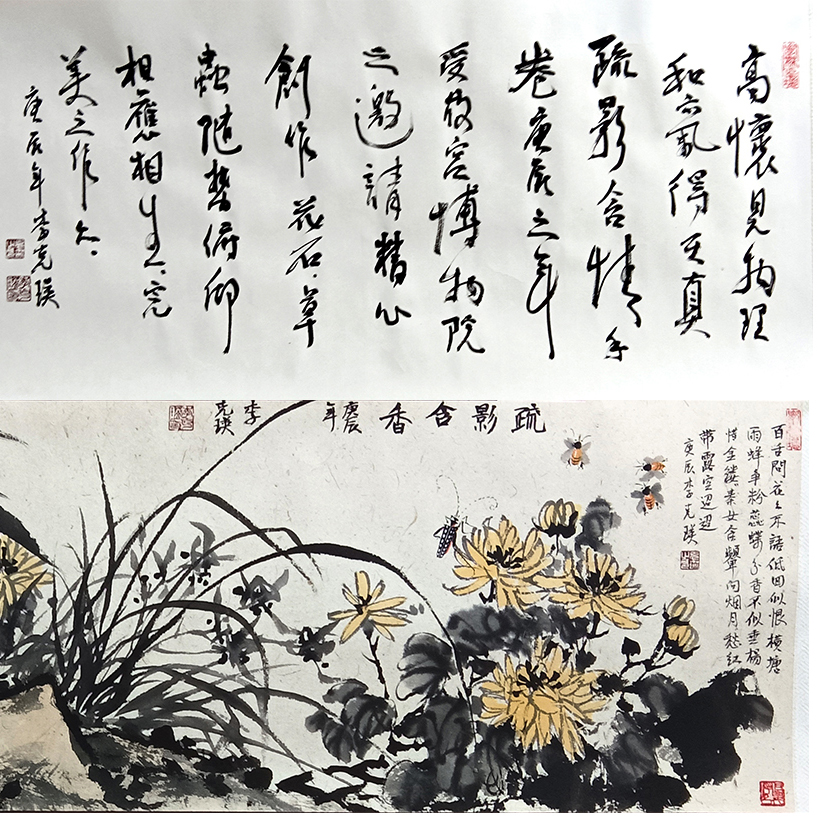 高懷見物理
和氣得天真
疏影含情手
卷庚辰之年
受故宮博物院
之邀請精心
創作花石草
蟲隨勢俯仰
相應相生完
美之作
庚辰年李克瑛
疏影含香
庚辰年
李克瑛
百舌問花々不語低回似恨橫塘
雨蜂争粉蕊蝶分香不似垂楊
惜金縷秦女含顰向烟月愁紅
带露空迢迢
庚辰李克瑛